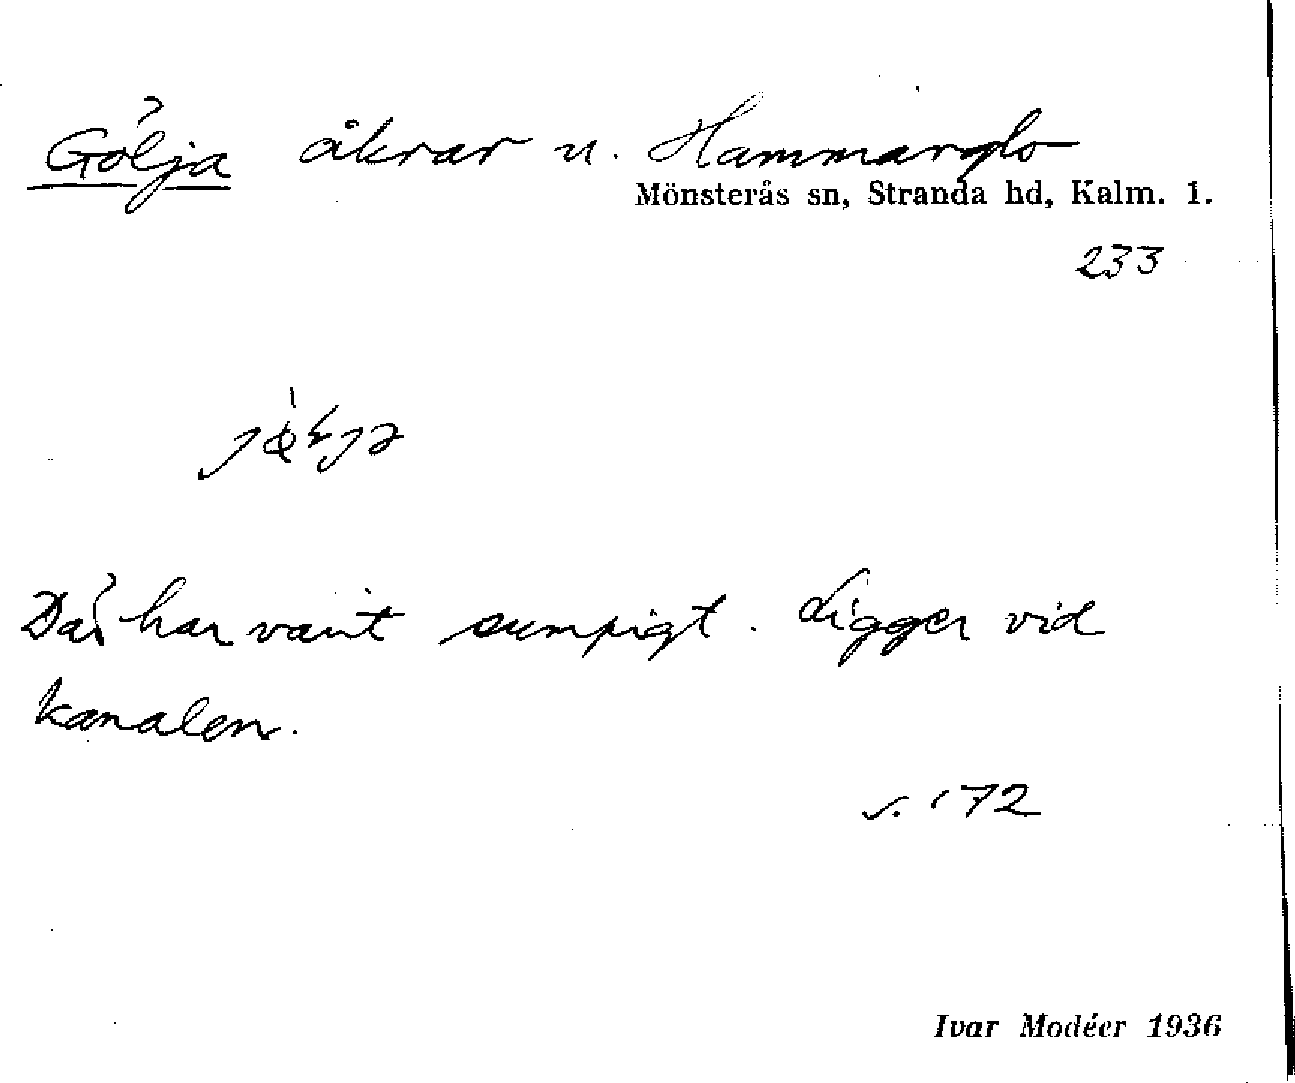 Gölja åkrar u. Hammarglo
Mönsterås sn, Stranda hd, Kalm. l.
233
Där har varit sumpigt. Ligger vid
kanalen.
s. 172
Ivar Modéer 1936